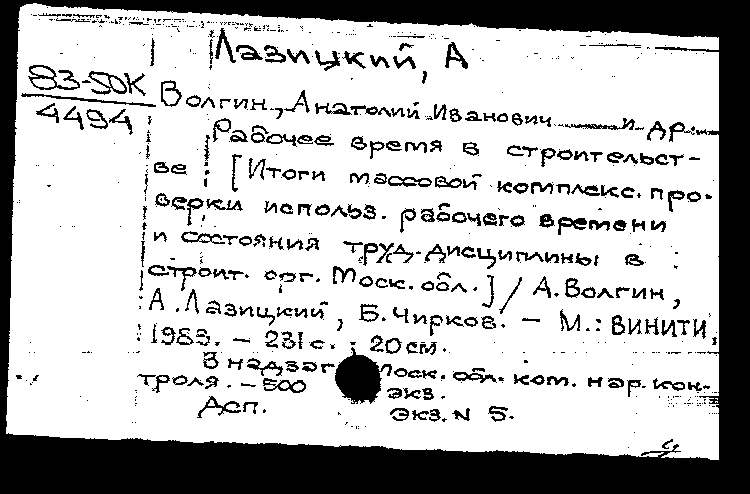 Лазицкий, А
83-50К
4494
Волгин, Анатолий Иванович и др.
Рабочее время в строительст-
ве : [Итоги массовой комплекс. про-
верки использ. рабочего времени
и состояния труд. дисциплины в
строит. орг. Моск. обл.] / А. Волгин,
А. Лазицкий, Б. Чирков. – М.: ВИНИТИ,
1983. – 231 с. ; 20 см.
В надзаг Моск. обл. ком. нар. кон-
троля. – 500 экз.
Дсп. Экз. N 5.